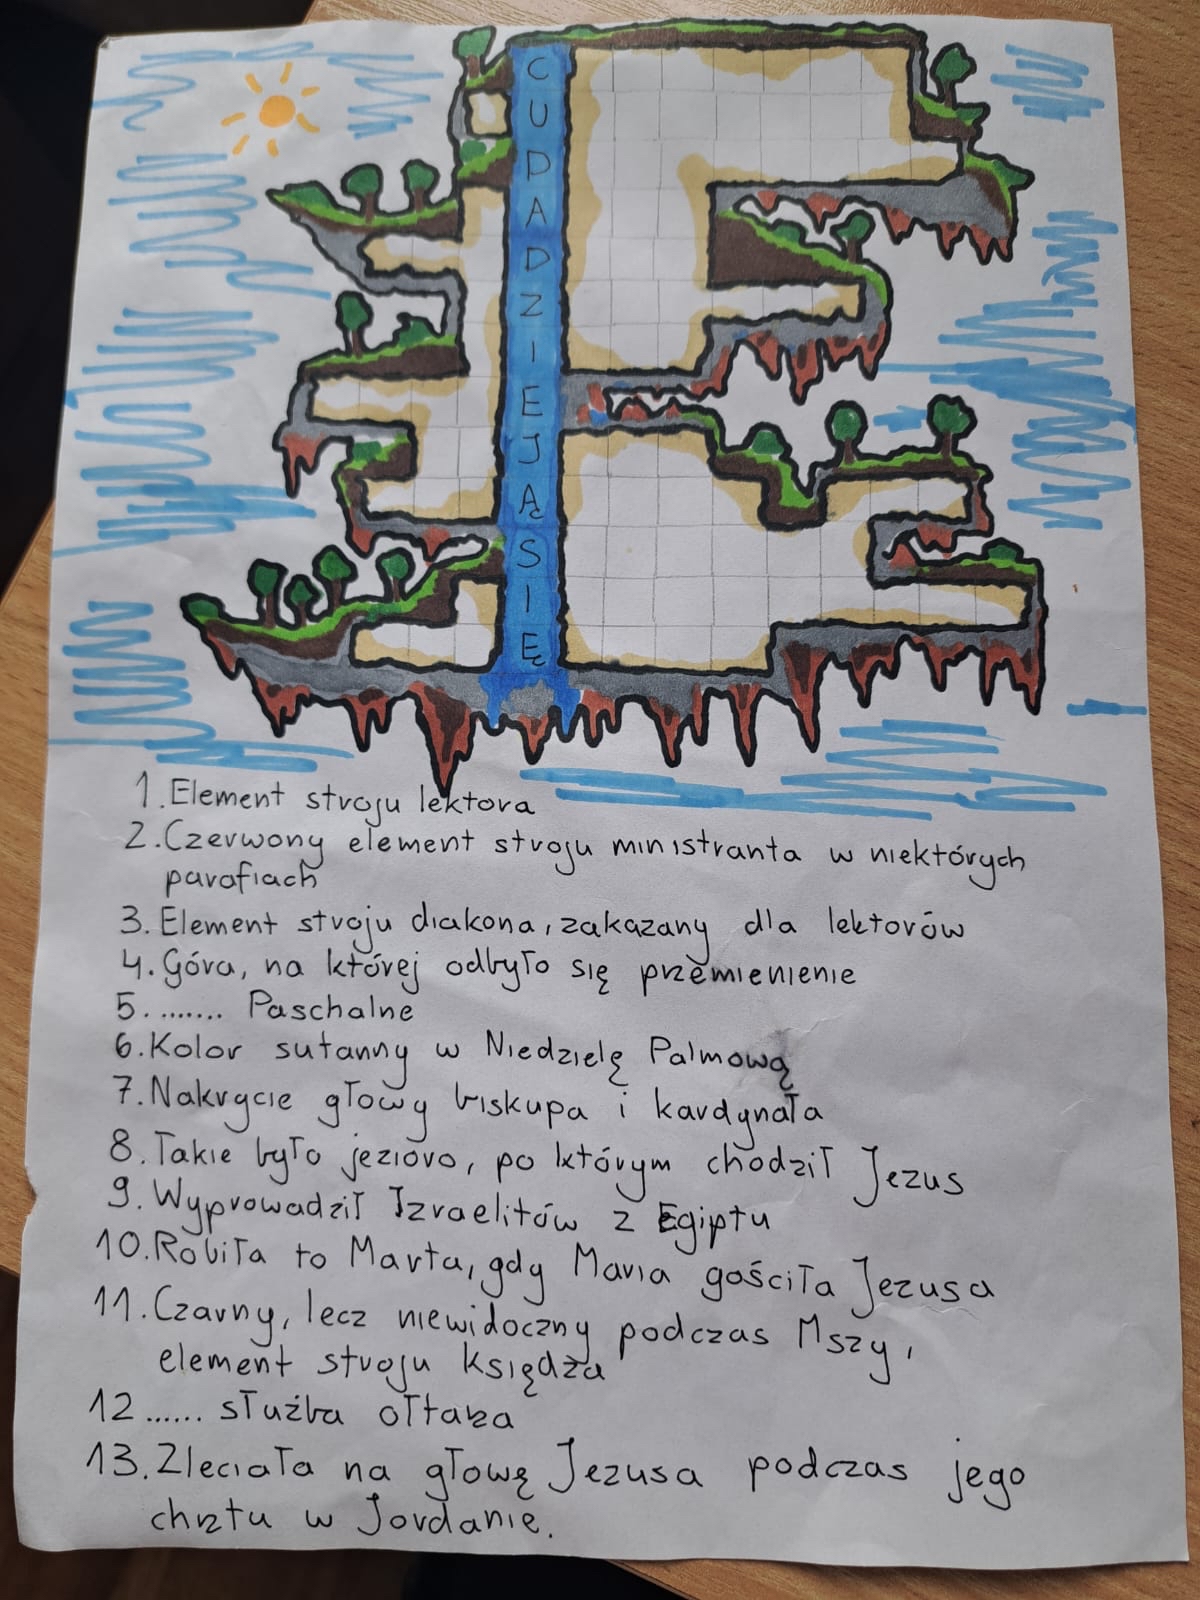 C
U
D
A
D
Z
I
E
J
Ą
S
I
Ę
1. Element stroju lektora
2. Czerwony element stroju ministranta w niektórych
parafiach
3. Element stroju diakona, zakazany dla lektorów
4. Góra, na której odbyło się przemienienie
5. ....... Paschalne
6. Kolor sutanny w Niedzielę Palmową
7. Nakrycie głowy biskupa i kardynała
8. Takie było jezioro, po którym chodził Jezus
9. Wyprowadził Izraelitów z Egiptu
10. Robiła to Marta, gdy Maria gościła Jezusa
11. Czarny, lecz niewidoczny podczas Mszy,
element stroju księdza
12 ...... służba ołtarza
13. Zleciała na głowę Jezusa podczas jego
chrztu w Jordanie.